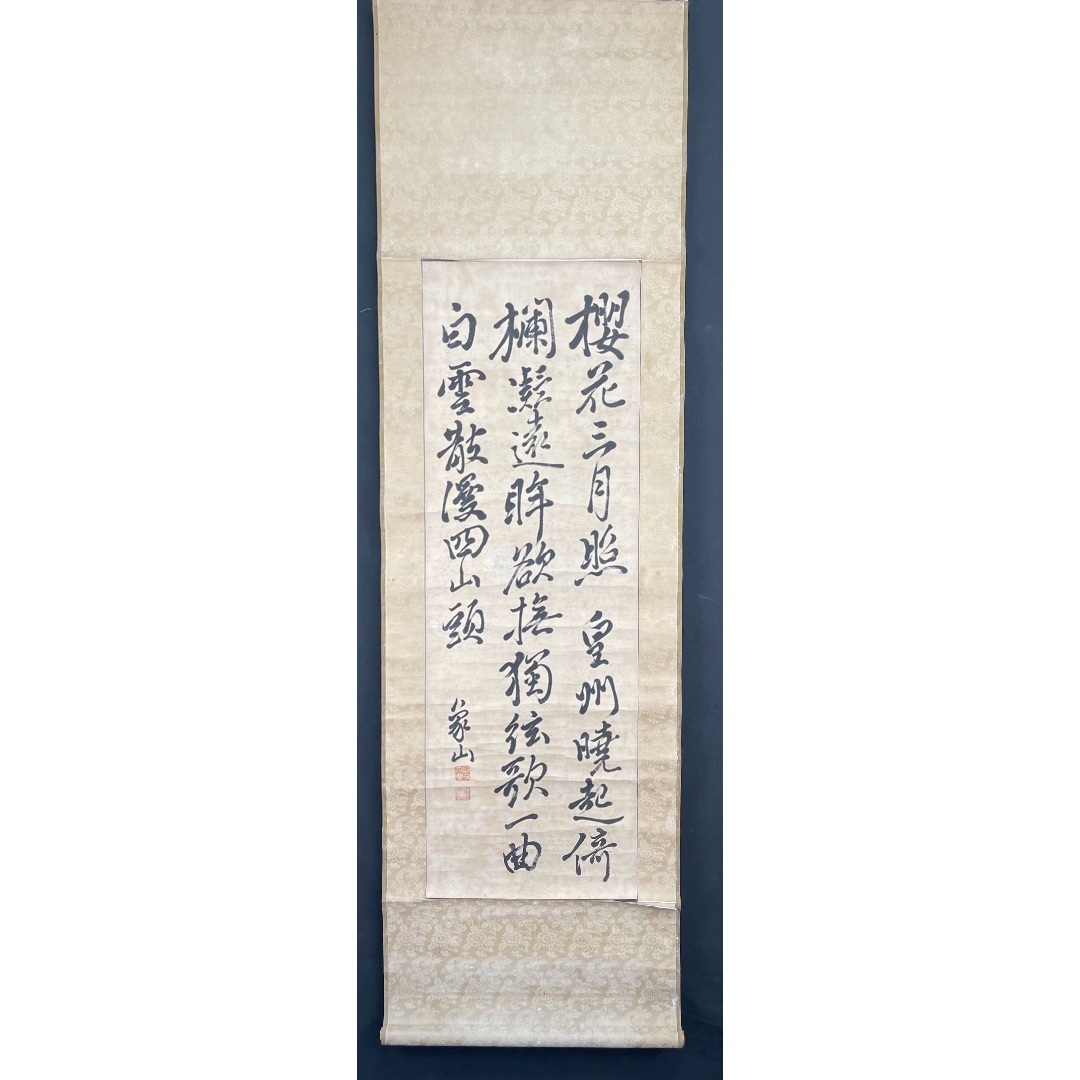 櫻花三月照 皇州曉起倚
欄凝遠眸欲撫獨弦歌一曲
白雲散漫四山頭
象山